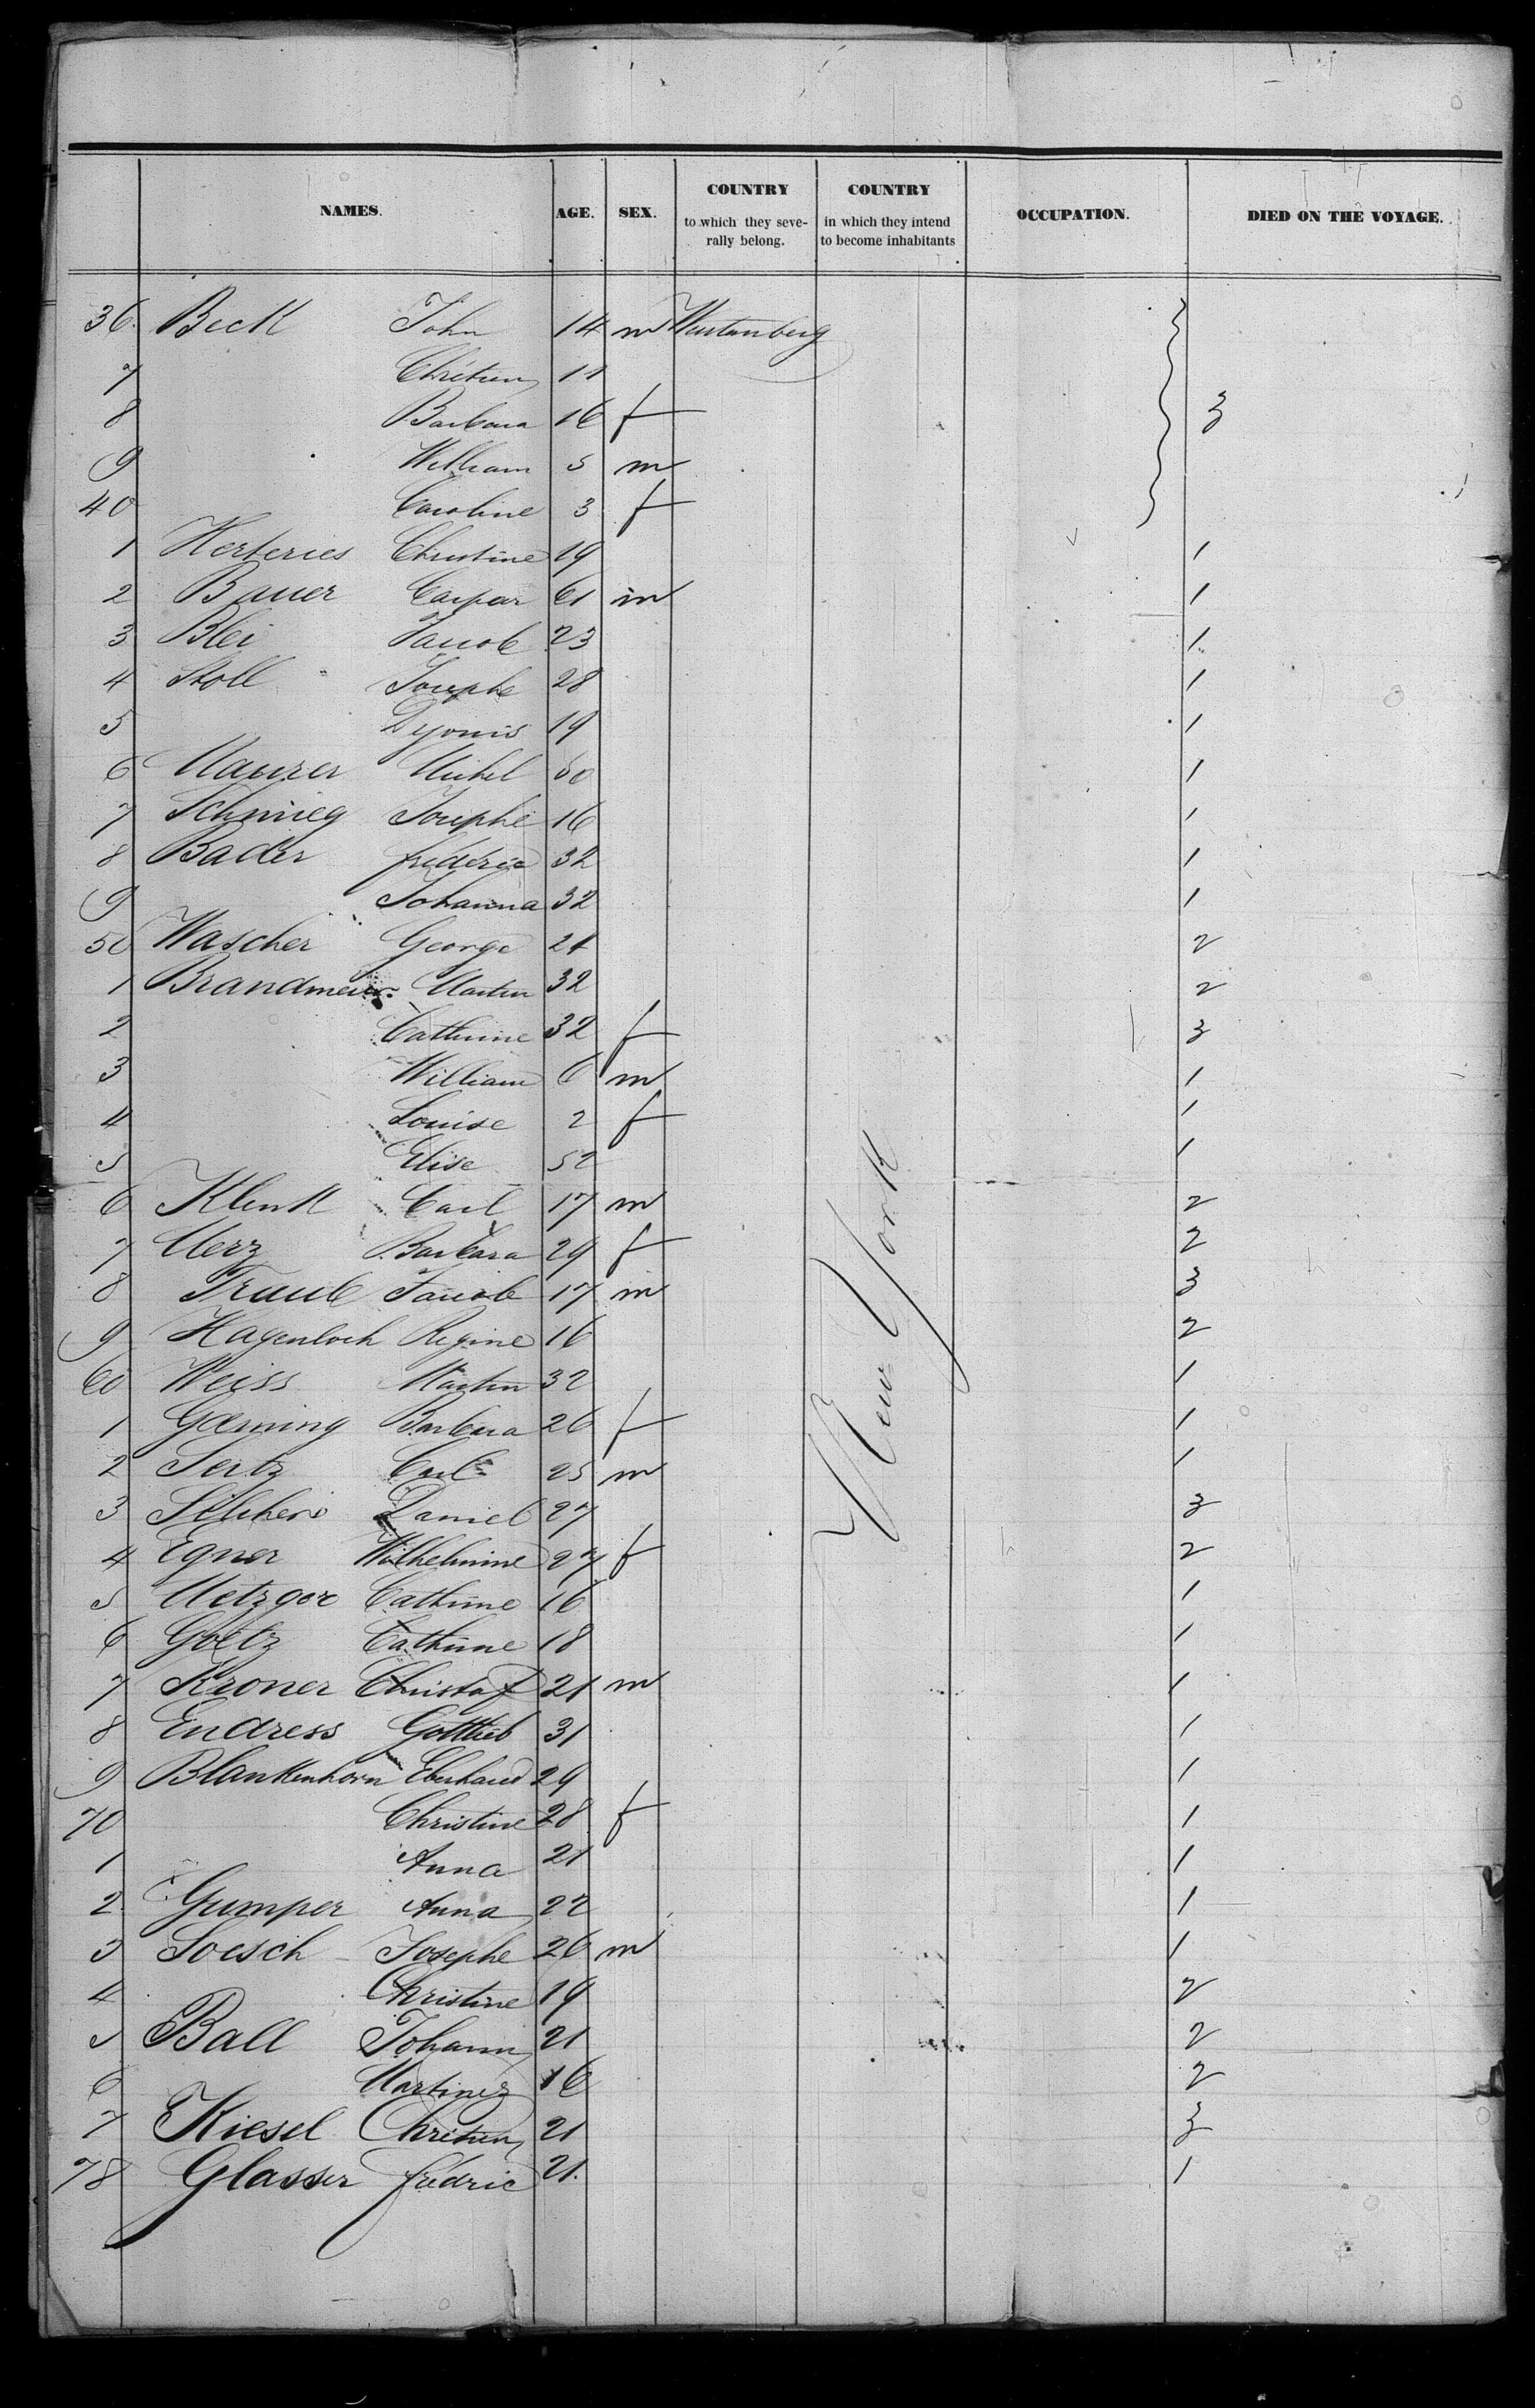 NAMES. AGE. SEX. COUNTRY to which they severally belong. COUNTRY in which they intend to become inhabitants OCCUPATION. DIED ON THE VOYAGE.
36. Beck John 14 m Wurtemberg
7 Chrétien 11
8 Barbara 16 f 3
9 William 5 m
40 Caroline 3 f
1 Herteries Christine 19 1
2 Bauer Caspar 61 m 1
3 Blei Jacob 23 1
4 Stoll Josephe 28 1
5 Dyonis 19 1
6 Maurer Michel 60 1
7 Schmieg Josephe 16 1
8 Bader frederic 32 1
9 Johanna 32 1
50 Wascher George 21 2
1 Brandmeier Martin 32 2
2 Catherine 32 f 3
3 William 6 m 1
4 Louise 2 f 1
5 Elise 52 1
6 Klenk Carl 17 m 2
7 Merz Barbara 29 f 2
8 Traub Jacob 17 m 3
9 Hagenloch Regine 16 2
60 Weiss Martin 32 1
1 Goerning Barbara 26 f 1
2 Seitz Carl 25 m 1
3 Silcher Daniel 27 3
4 Egner Wilhelmine 27 f 2
5 Metzger Catherine 16 1
6 Goetz Catherine 18 1
7 Kroner Christof 21 m 1
8 Endress Gottlieb 31 1
9 Blankenhorn Eberhard 29 1
70 Christine 28 f 1
1 Anna 21 1
2 Gumper Anna 22 1
3 Loesch Josephe 26 m 1
4 Christine 19 2
5 Ball Johann 21 2
6 Martinez 16 2
7 Kiesel Chretien 21 3
78 Glasser fredric 21. 1
New York